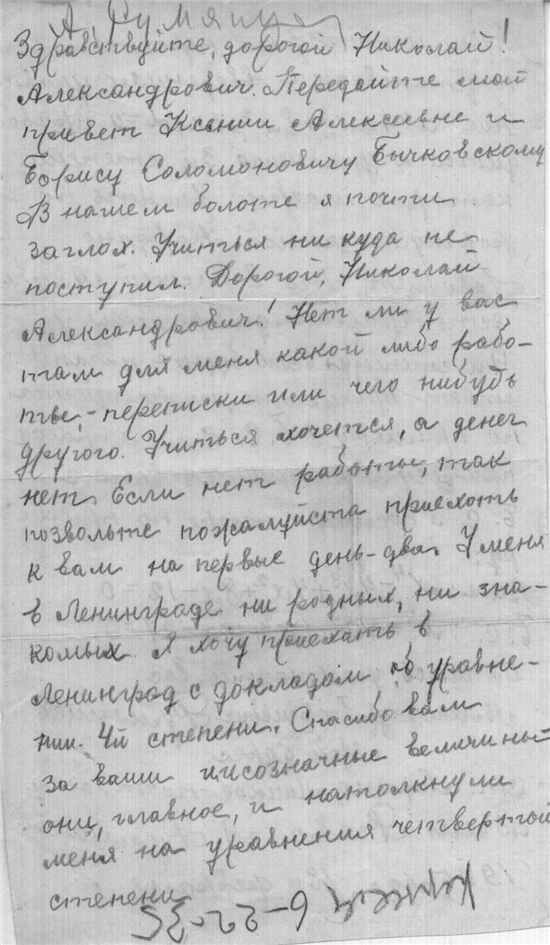 А Румянцев
Здравствуйте, дорогой Николай!
Александрович. Передайте мой
привет Ксении Алексеевне и
Борису Соломоновичу Бычковскому
В нашем болоте я почти
заглох. Учиться ни куда не
поступил. Дорогой, Николай
Александрович! Нет ли у вас
там для меня какой либо рабо-
ты,- переписки или чего нибудь
другого. Учиться хочется, а денег
нет. Если нет работы, так
позвольте пожалуйста приехать
к вам на первые день-два. У меня
в Ленинграде ни родных, ни зна-
комых. Я хочу приехать в
Ленинград с докладом об уравне-
нии. 4й степени. Спасибо вам
за ваши
величины
они, главное, и натолкнули
меня на уравнения четвертой
степени
6-22-35